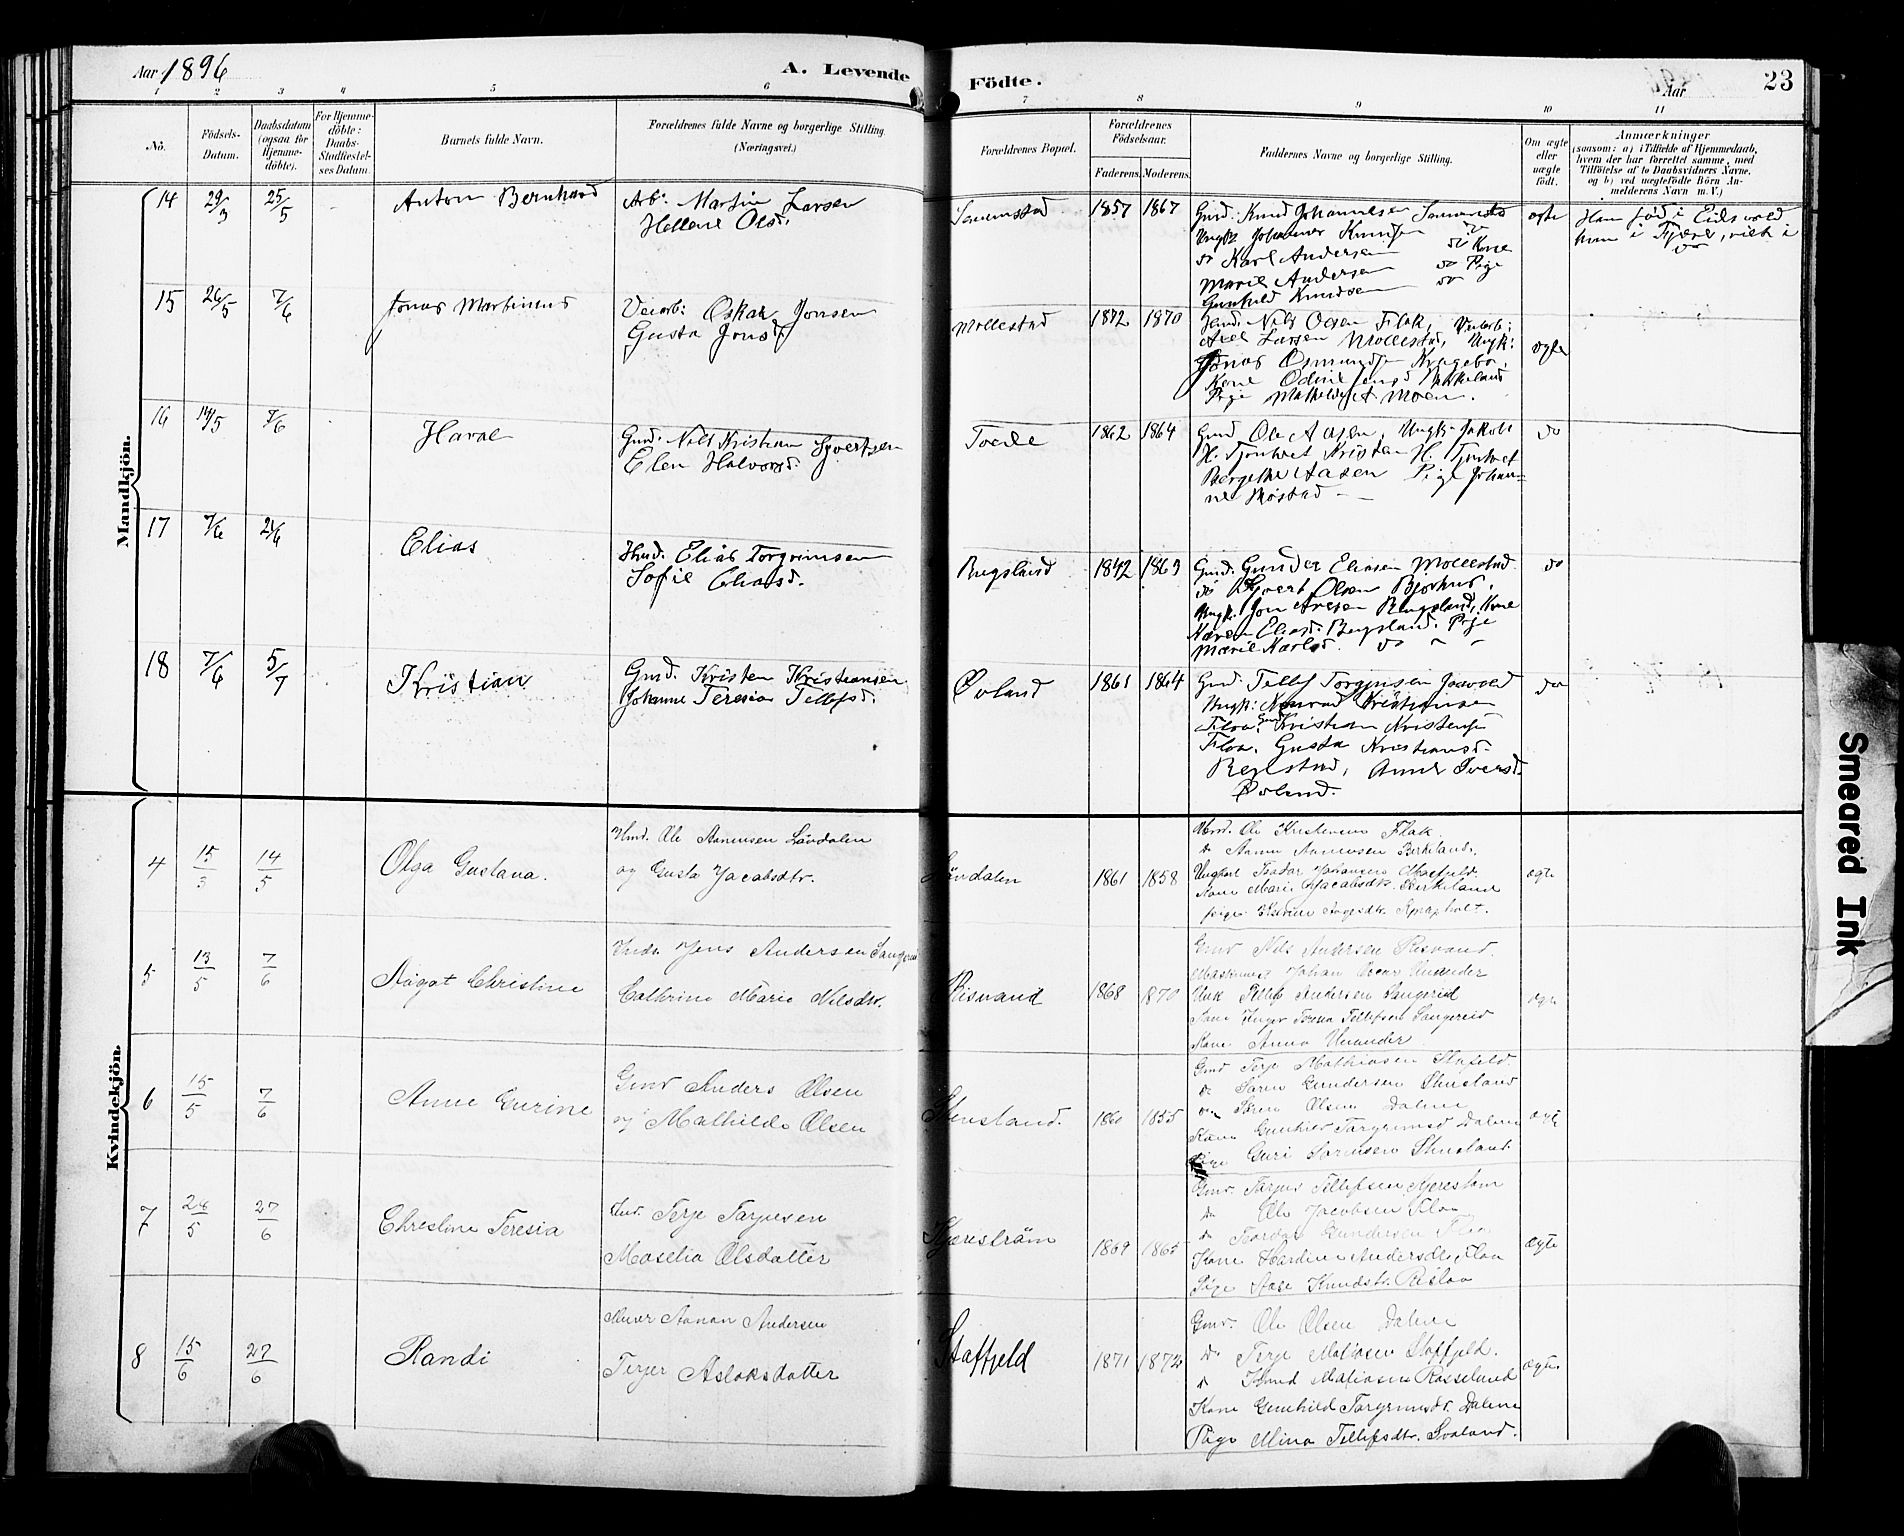 Aar 1896
A. Levende
1 2 3 4 5 6
No.
Födsels-Datum.
Daabsdatum (ogsaa for Hjemme-döbte).
For Hjemme-döbte: Daabs-Stadfæstelses Datum.
Barnets fulde Navn.
Forældrenes fulde Navne og borgerlige Stilling. (Næringsvei.)
Födte.
Aar
23
7 8 9 10 11
Forældrenes Bopæl.
Forældrenes Födselsaar.
Faderens. Moderens.
Faddernes Navne og borgerlige Stilling.
Om ægte eller uægte födt.
Anmærkninger
(saasom: a) i Tilfælde af Hjemmedaab,
hvem der har forrettet samme, med
Tilföielse af to Daabsvidners Navne,
og b) ved uægtefödte Börn An-
melderens Navn m. V.)
Mandkjön.
14 29/3 25/5 - Anton Bernhard
Arb: Martin Larsen
Hellene Olsd.
1857 1867
Gmd: Knud Johannesen
Ungk. Johannes do
do Karl Andersen do Kone
Marie Andersen do Pige
Gunhild Knudsen do
ægte
Ham föd i Eidsvold
hun i Fjære, viet i
do
15 26/5 7/6 Jonas Martinius
Veiarb: Oskar Jonsen
Gusta Jonsd.
Mollestad 1872 1870
Gmd. Nils Olsen Flak,
Axel Larsen Mollestad, Ungk:
Jonas Osmundsen
Kone Odine Jensd. Birkeland
Pige Mathilde A Moen.
ægte
16 14/5 7/6 Harae
Gmd. Nils Kristian Syvertsen
Elen Halvorsd.
1862 1864
Gmd Ole Aasen, Ungk. Jakob
H. Tjonhvet Kristen H. Tjonhvet
Bergethe Aasen Pige Johan=
ne
do
17 7/6 21/6 Elias
Hmd. Elias Torgrimsen
Sofie Eliasd.
Bergsland 1842 1863
Gmd. Gunder Eliasen Mollestad
do Syvert Olsen Bjorhus,
Ungk. Jon Aresen Bergsland, Kone
Karen Eliasd. Bergsland. Pige
Marie Karlsd. do
do
18 7/6 5/7 Kristian
Gmd. Kristen Kristiansen
Johanne Teresia Tellefsd.
Øvland 1861 1864
Gmd. Tellef Torgersen
Ungk: Konrad Kristiansen
Floa, Gmd Kristian Kristensen
Floa. Gusta Kristiansd.
Anne Iversd.
Øvland.
do
Kvindekjön.
4 15/3 14/5 Olga Gustava.
Hmd. Ole Aanensen Lövdalen
og Gusta Jacobsdtr.
Lövdalen 1861 1858
Gmd. Ole Kristensen Flak
do Aanen Aanensen Birkeland.
Ungkarl Teodor Johansen
Kone Marie Jacobsdtr. Birkeland
pige
ægte
5 13/5 7/6 Aagot Christine
Inds. Jens Andersen
Cathrine Marie Nilsdtr.
Risvand 1868 1870
Gmd Nils Andersen Risvand.
Maskinist Johan Oscar Unander
Unk Tellef Andersen Sangereid
Kone Inger Teresia Tellefsen Sangereid
Kone Anna Unander
ægte
6 15/5 7/6 Anne Gurine
Gmd Anders Olsen
og Mathilde Olsen
Stensland. 1860 1855
Gmd Terje Mathiasen Stafjeld
do Sören Gundersen Stensland
do Sören Olsen Dalene
Kone Gunhild Torgrimsd Dalene
Pige Guri Sörensen Stensland.
ægte
7 28/5 27/6 Christine Teresia
Ind. Terje Tarjusen
Maselia Olsdatter
1869 1865
Gmd. Tarjus Tellefsen
do Ole Jacobsen Floa
do Teodor Gundersen Floa
Kone Hardine Andersdtr. Floa
Pige Aase Knudsdtr. Risloa
ægte
8 15/6 27/6 Randi
Aanon Andersen
Terjer Aslaksdatter
Stafjeld 1871 1872
Gmd. Ole Olsen Dalene
do Terje Matiasen Stafjeld.
do Knud Matiasen Rosseland
Kone Gunhild Torgrimsdt. Dalene
Pige Mina Tellefsdtr. Svaland.
ægte
Smeared Ink